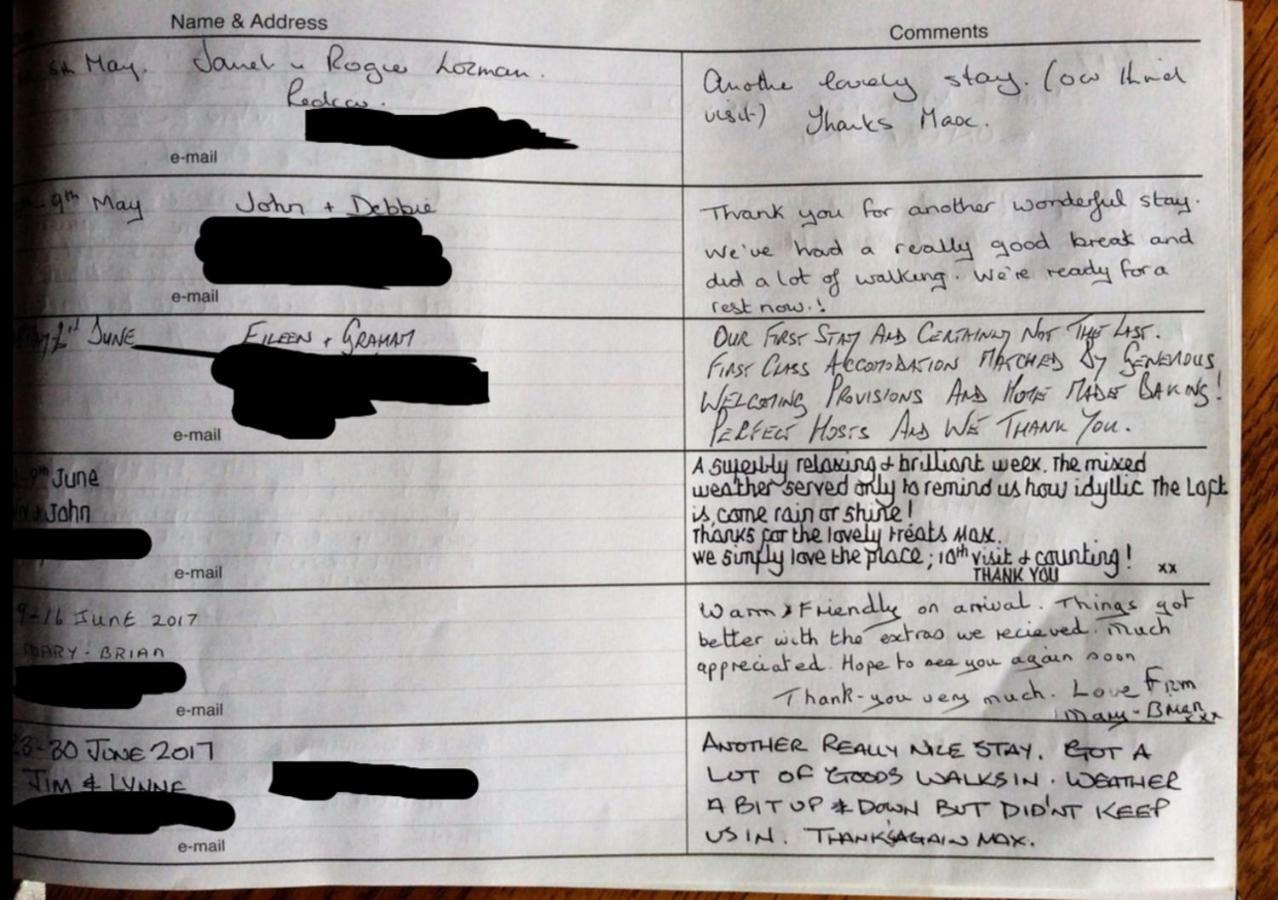 Name & Address
Comments
May. Janet Rogie Lozman.
Redcar.
e-mail
Anothe lovely stay. (our third
visit) Thanks Max.
9th May John + Debbie
e-mail
Thank you for another wonderful stay.
We've had a really good break and
did a lot of walking. We're ready for a
rest now.!
JUNE EILEEN + GRAHAM
e-mail
OUR FIRST STAY AND CERTAINLY NOT THE LAST.
FIRST CLASS ACCOMODATION MATCHED BY GENEROUS
WELCOMING PROVISIONS AND HOME MADE BAKING!
PERFECT HOSTS AND WE THANK YOU.
9th June
John
e-mail
A superbly relaxing & brilliant week. The mixed
weather served only to remind us how idyllic The Loft
is, come rain or shine!
Thanks for the lovely treats Max.
We simply love the place; 10th visit & counting!
THANK YOU xx
9-16 JUNE 2017
MARY - BRIAN
e-mail
Warm & Friendly on arrival. Things got
better with the extras we recieved. Much
appreciated. Hope to see you again soon
Thank-you very much. Love From
Mary - Brian
xxx
23-30 JUNE 2017
JIM & LYNNE
e-mail
ANOTHER REALLY NICE STAY. GOT A
LOT OF GOODS WALKS IN. WEATHER
A BIT UP & DOWN BUT DID'NT KEEP
US IN. THANKS AGAIN MAX.